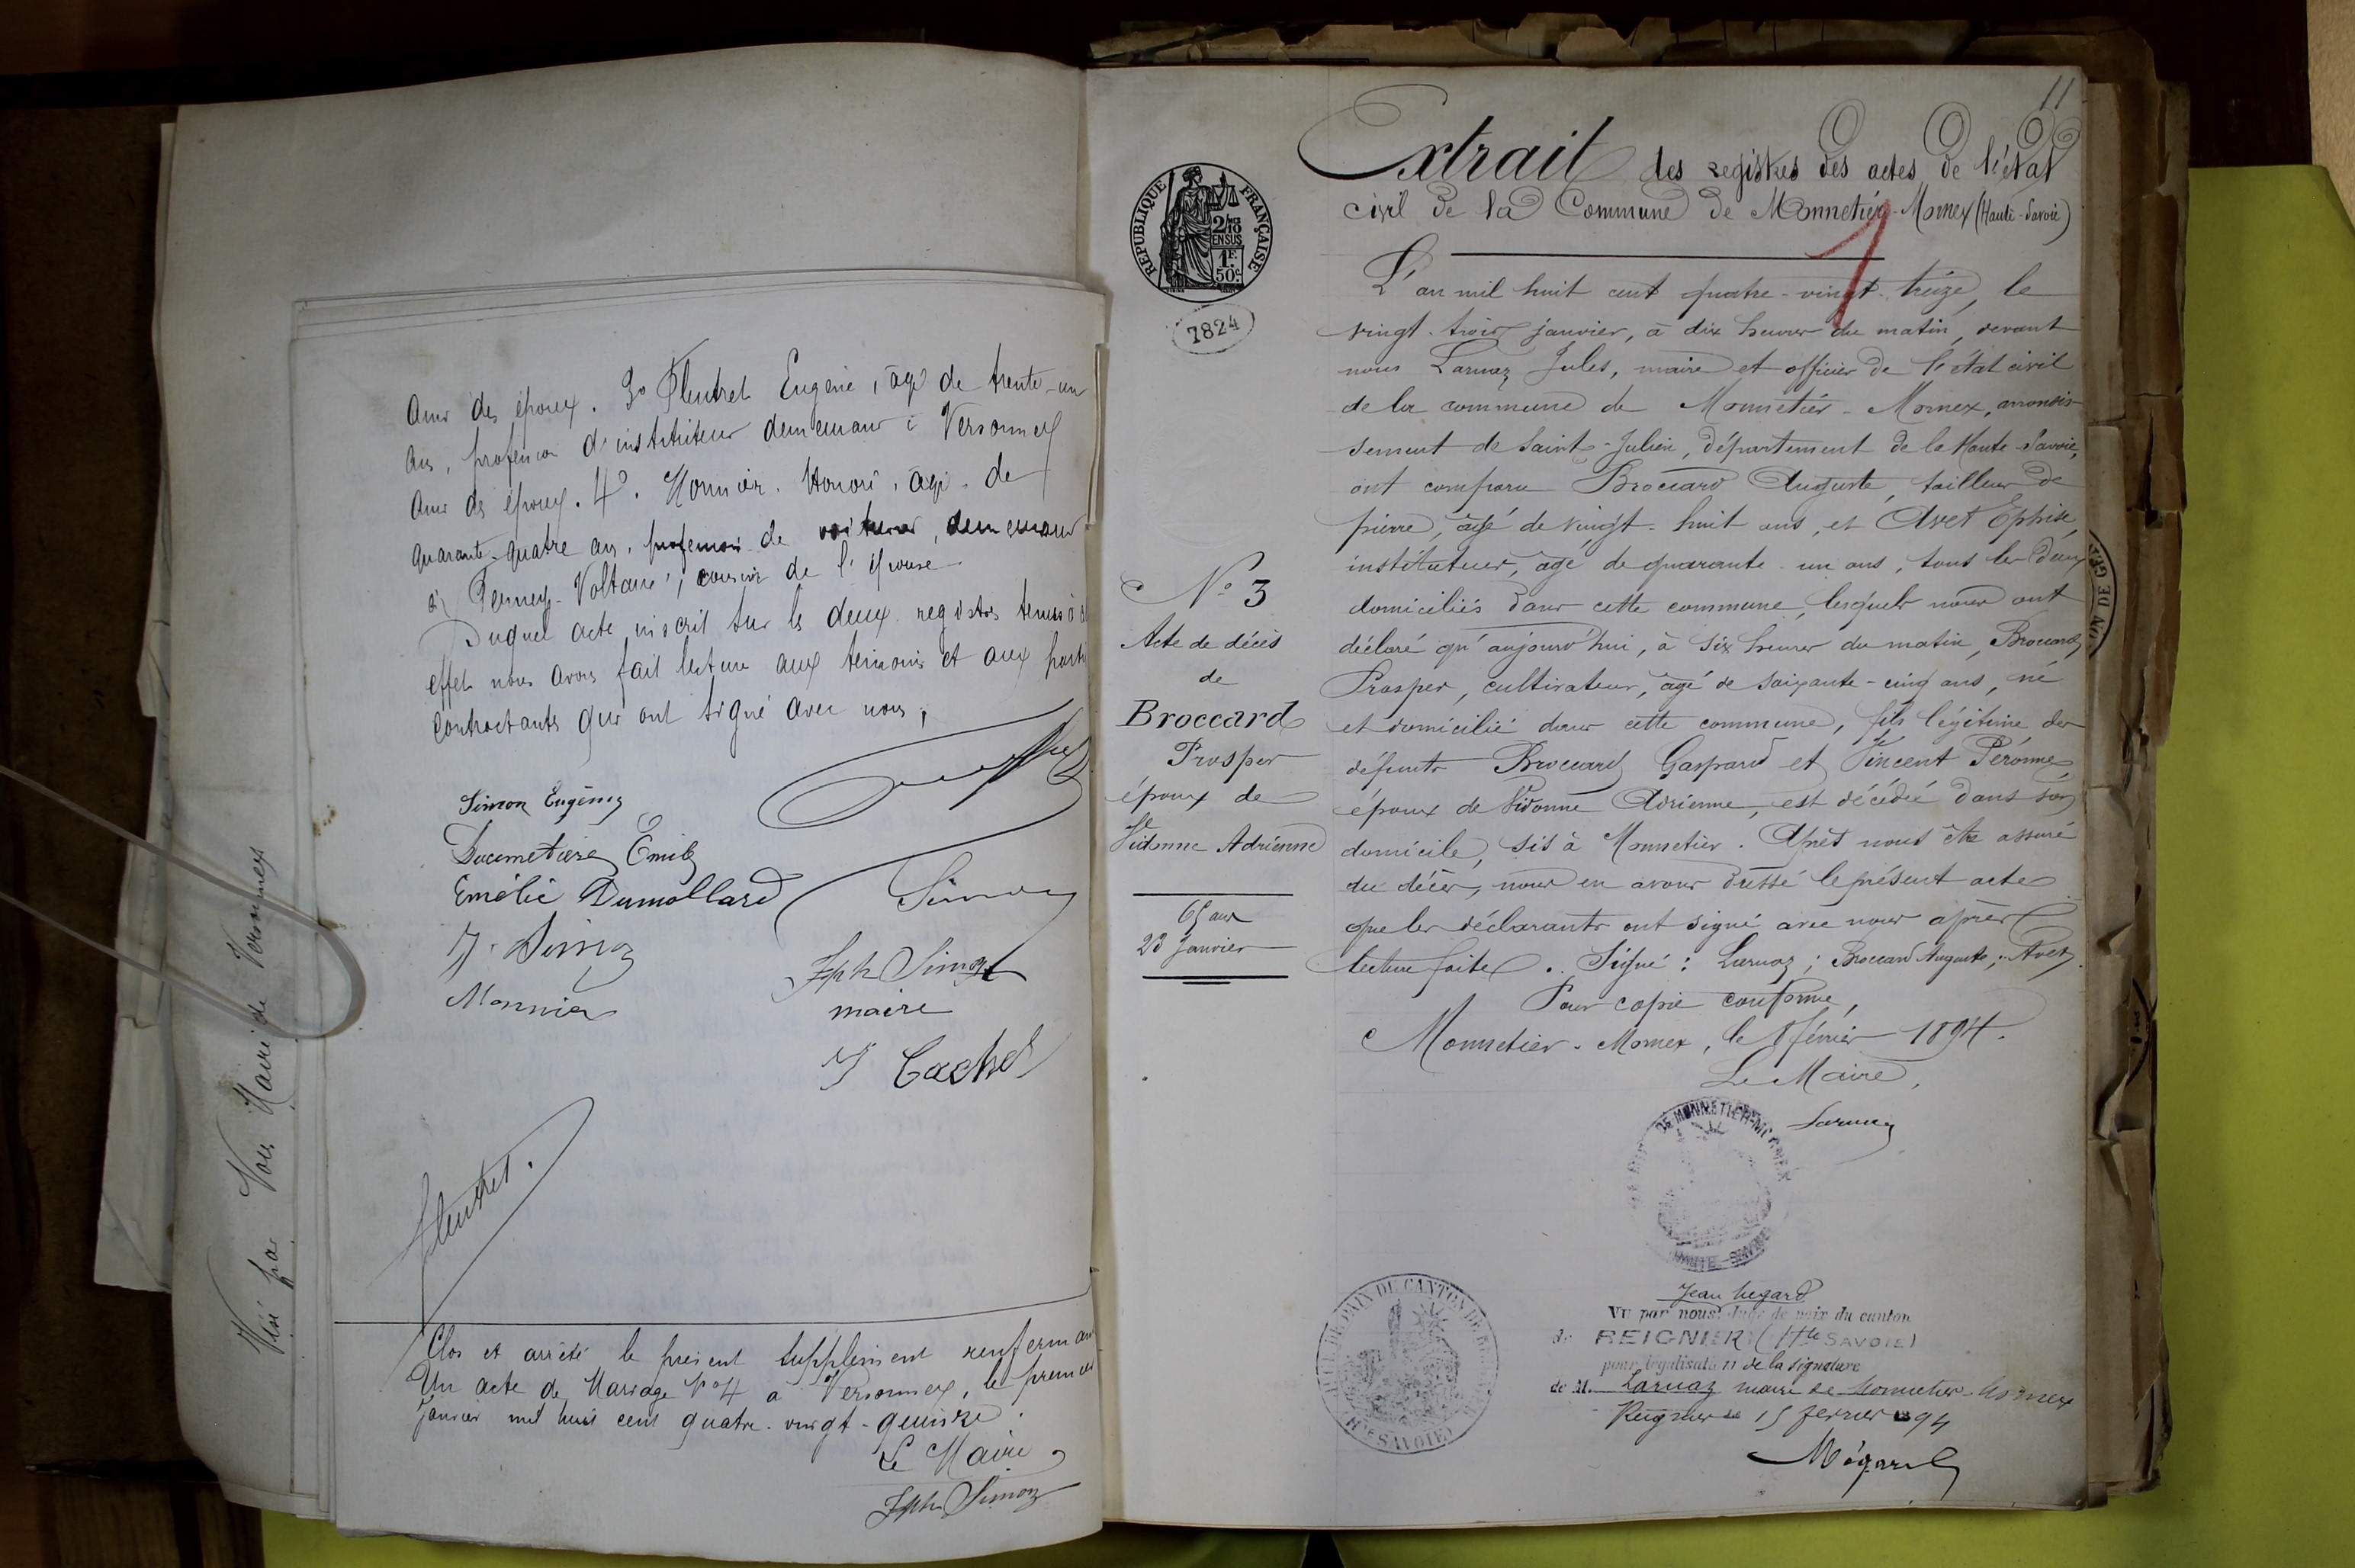 amis des époux. 3º Fleutret Eugène, âgé de trente-un
ans, profession d'instituteur demeurant à Versonnex
amis des époux. 4º. Monnier. Honoré, âgé de
quarante-quatre ans, profession de voiturier, demeurant
à Ferney-Voltaire, cousin de l'épouse.
Duquel acte inscrit sur les deux registres tenus à
effet nous avons fait lecture aux témoins et aux parti
contractants qui ont signé avec nous,
Simon Eugénie
Ducimetière Emile
Emélie Dumollard
Simon
J. Simon
Jph Simon
Monnier
maire
J Cachet
fleutret.
Clos et arrêté le présent supplément renfermant
Un acte de Mariage Nº 4 à Versonnex, le premier
Janvier mil huit cent quatre-vingt-quinze.
Le Maire
Jph Simon
Visé par Nous Maire de Versonnex
11
Extrait des registres des actes de l'état
civil de la Commune de Monnetier-Mornex (Haute-Savoie)
1
RÉPUBLIQUE FRANÇAISE
2/10
EN SUS
1F
50c
7824
L'an mil huit cent quatre-vingt-treize, le
vingt-trois janvier, à dix heures du matin, devant
nous Larnaz Jules, maire et officier de l'état civil
de la commune de Monnetier-Mornex, arrondis-
sement de Saint-Julien, département de la Haute-Savoie,
ont comparu Broccard Auguste, tailleur de
pierre, âgé de vingt-huit ans, et Avet Ephise,
instituteur, âgé de quarante-un ans, tous les deux
domiciliés dans cette commune, lesquels nous ont
déclaré qu'aujourd'hui, à six heures du matin, Broccard
Prosper, cultivateur, âgé de soixante-cinq ans, né
et domicilié dans cette commune, fils légitime des
défunts Broccard Gaspard et Vincent Péronne,
époux de Vidonne Adrienne, est décédé dans son
domicile, sis à Monnetier. Après nous être assuré
du décès, nous en avons dressé le présent acte
que les déclarants ont signé avec nous après
lecture faite. Signé: Larnaz; Broccard Auguste; Avet.
Pour copie conforme,
Monnetier-Mornex, le 8 février 1894.
Le Maire,
Larnaz
Nº 3
Acte de décès
de
Broccard
Prosper
époux de
Vidonne Adrienne
65 ans
23 Janvier
DE MONNETIER-MORNEX
HAUTE-SAVOIE
DE PAIX DU CANTON DE
Hte SAVOIE
Jean Mégard
Vu par nous Juge de paix du canton
de REIGNIER (Hte SAVOIE)
pour légalisation de la signature
de M. Larnaz maire de Monnetier-Mornex
Reignier le 15 février 1894
Mégard
ON DE GEX